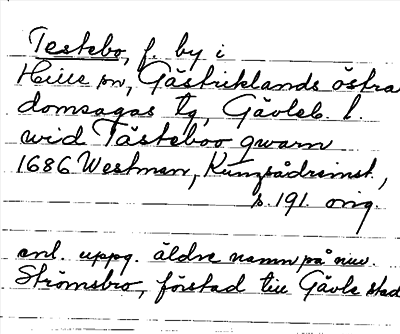 Testebo, f. by i
Hille sn, Gästriklands östra
domsagas tg, Gävleb. l.
wid Tästeboo qwarn
1686 Westman, Kungsådreinst.,
s. 191. orig.
enl. uppg. äldre namn på nuv.
Strömsbro, förstad till Gävle stad